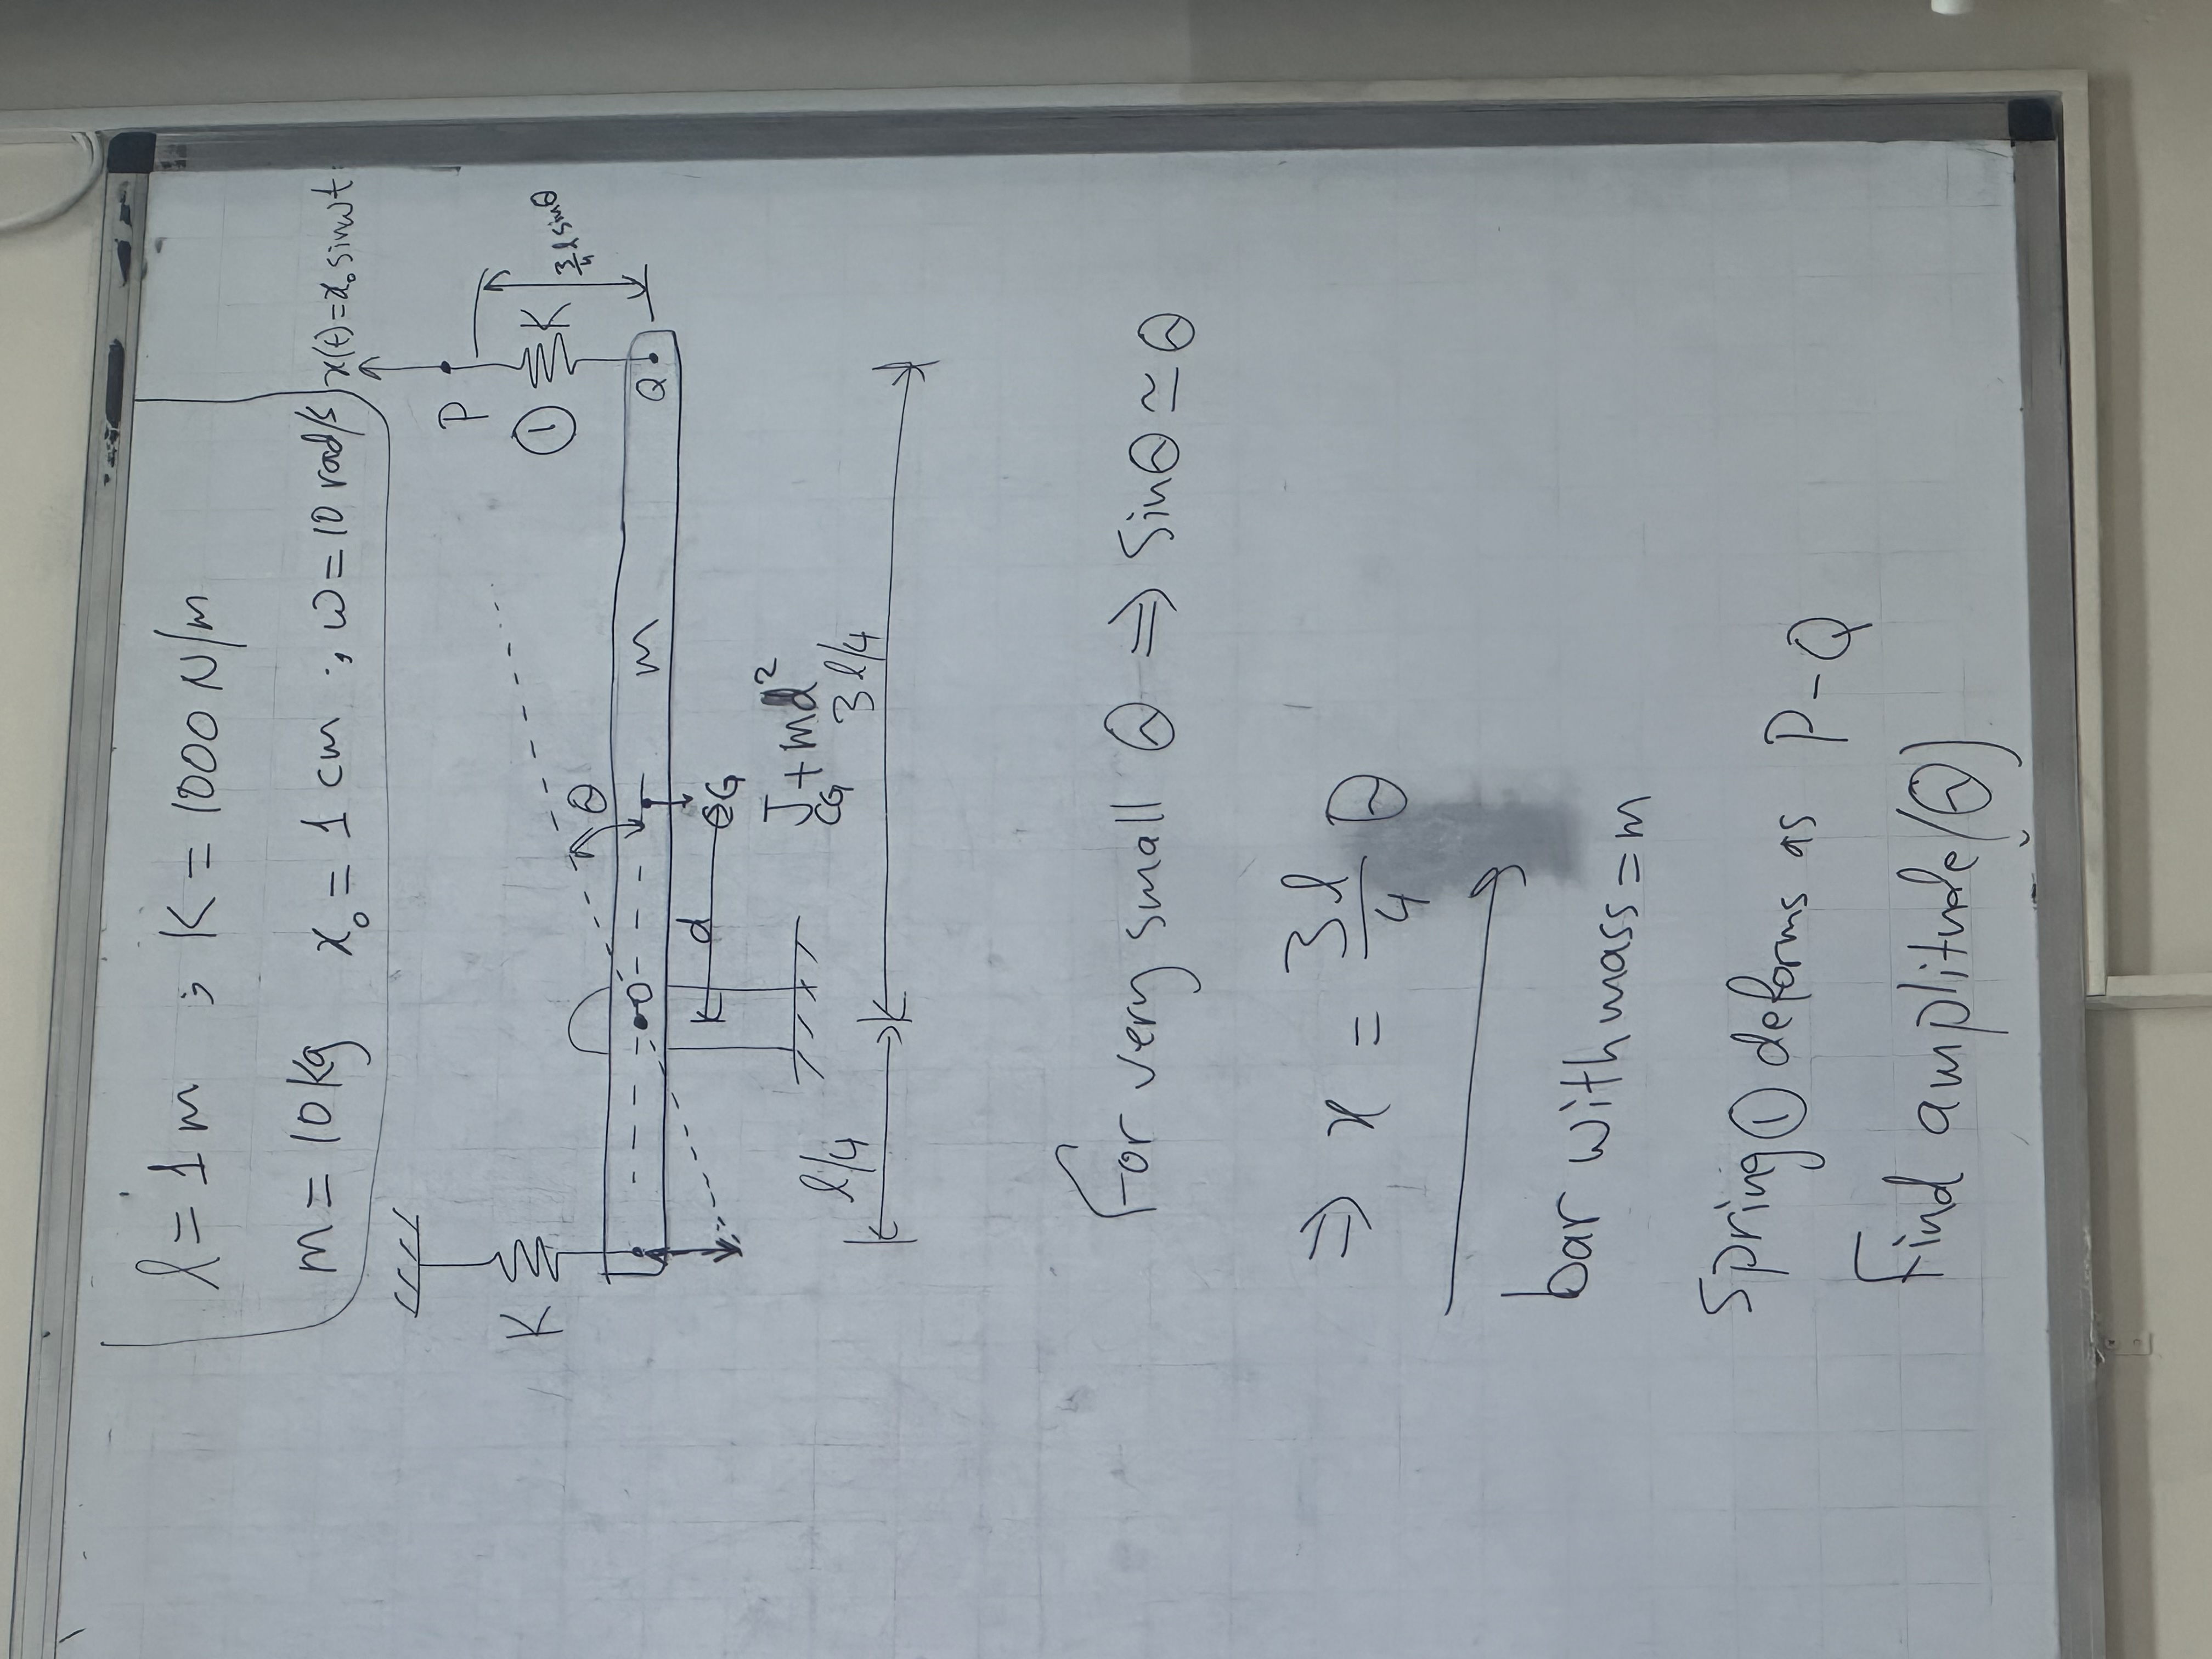 l = 1 m ; K = 1000 N/m
m = 10 kg x₀ = 1 cm ; ω = 10 rad/s
x(t) = x₀ sin ωt
P
K
①
K
3/4 l sin θ
θ
m
Q
O
d
CG
J_CG + md²
l/4
3l/4
For very small θ ⇒ sin θ ≃ θ
⇒ x = 3l/4 θ
bar with mass = m
Spring ① deforms as P - Q
Find amplitude (θ)